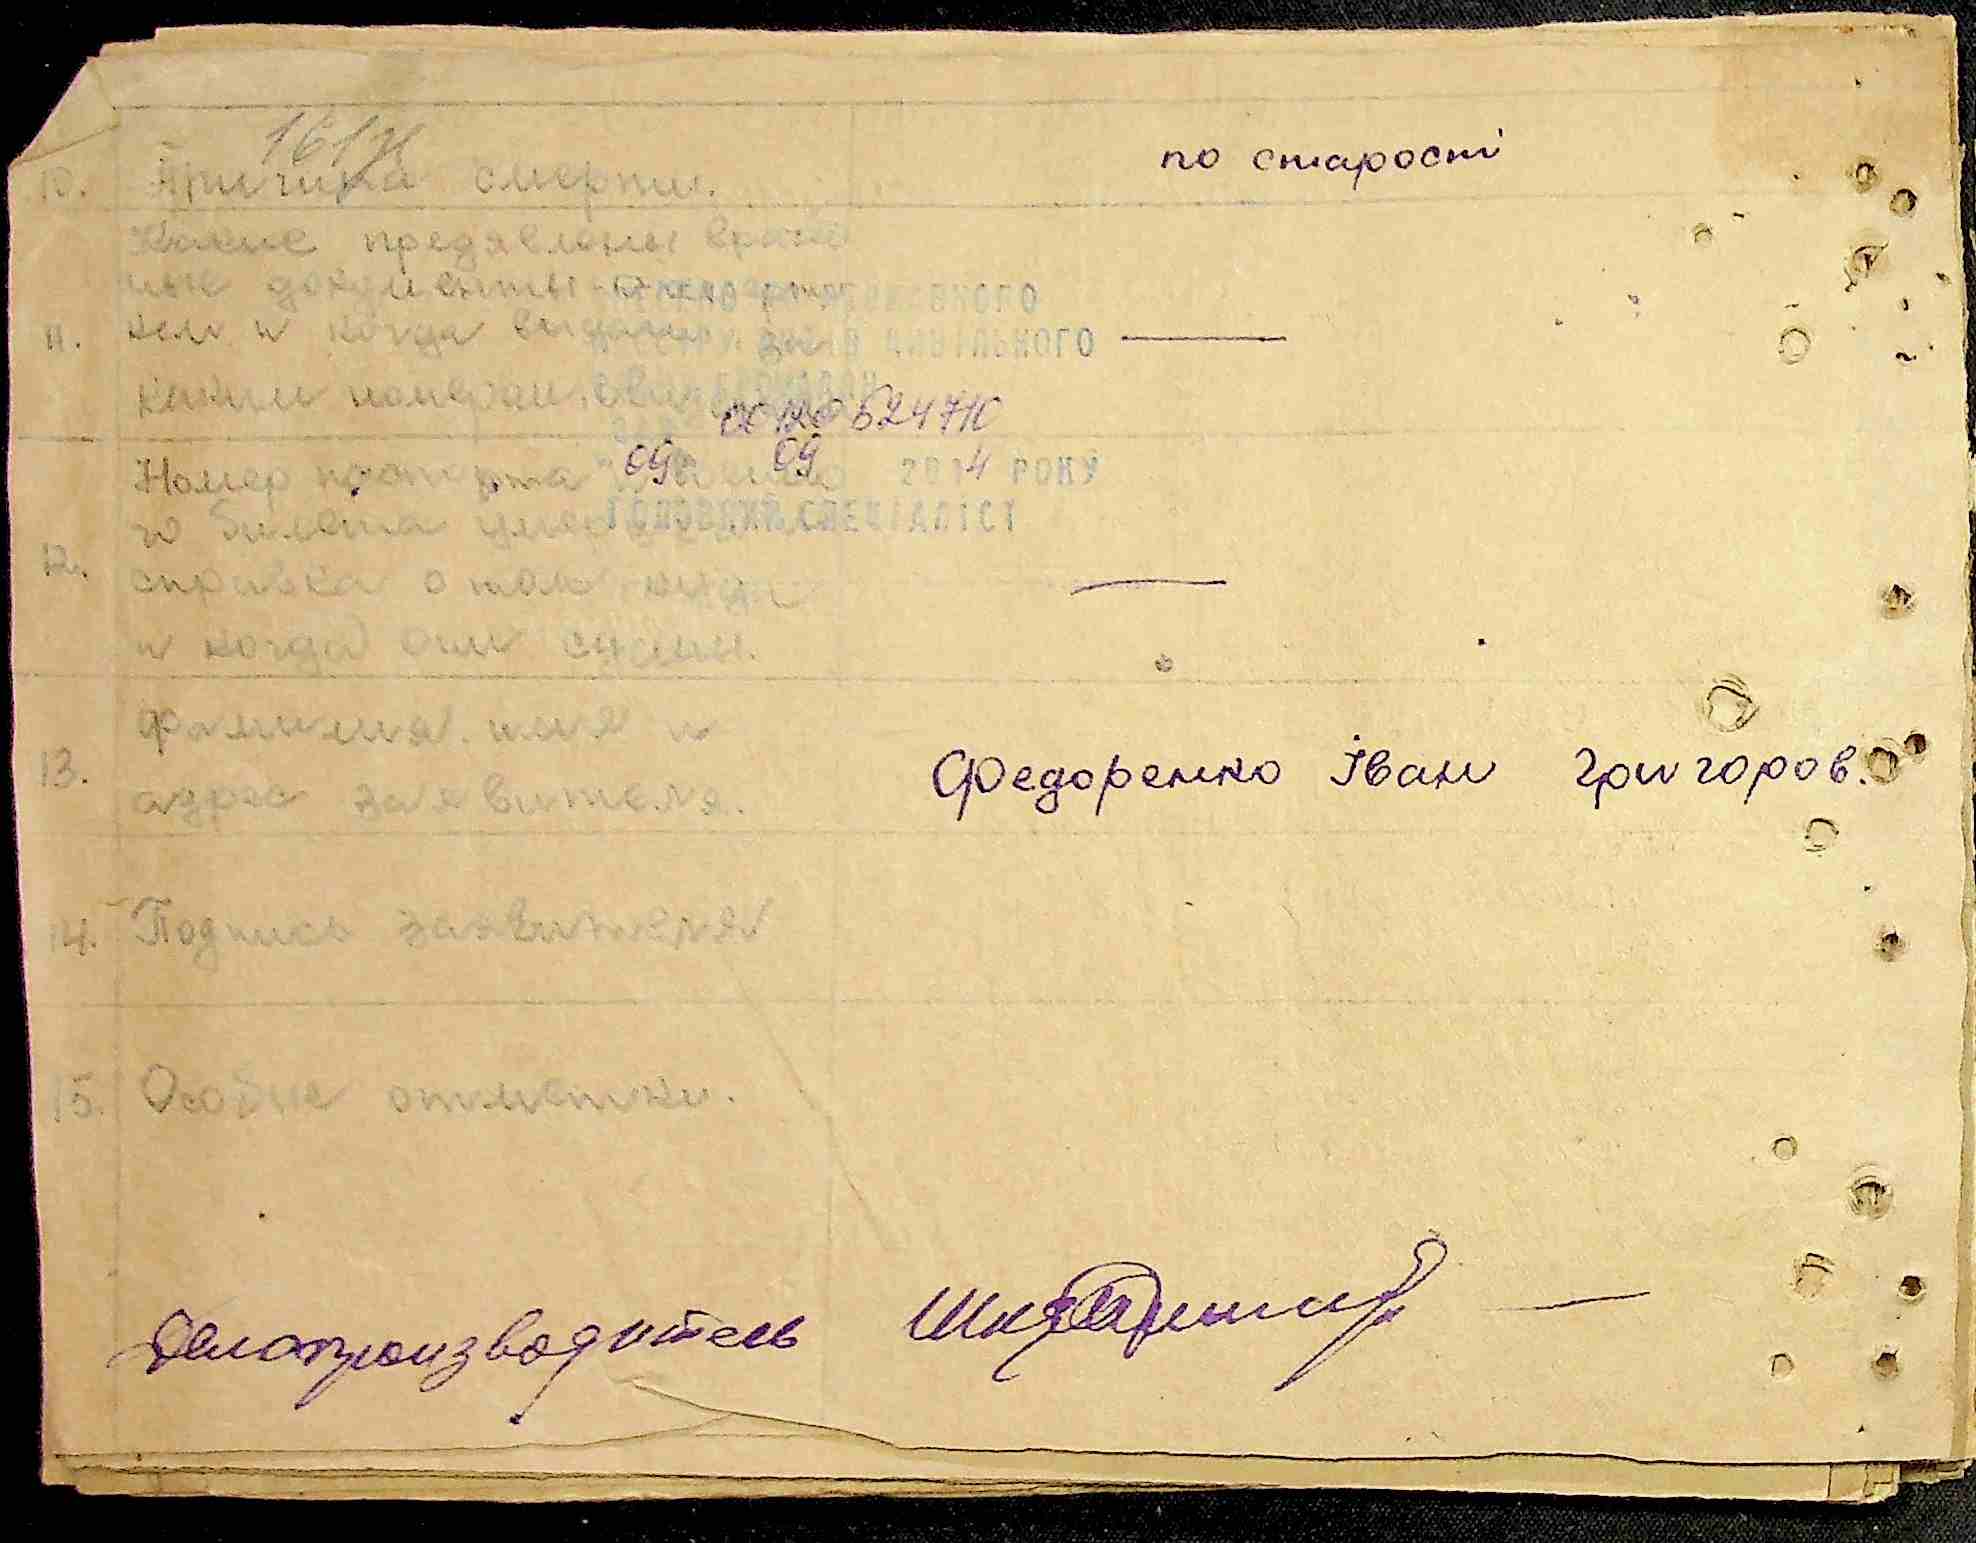 10. Причина смерти.
по старості
Какие предявлены врачеб
ные документы
11. кем и когда выданы за
каким номером.
ВНЕСЕНО ДО ДЕРЖАВНОГО
РЕЄСТРУ АКТІВ ЦИВІЛЬНОГО
00120624710
09 09 2014 РОКУ
ГОЛОВНИЙ СПЕЦІАЛІСТ
Номер паспорта
го билета
12. справка о том куда
и когда они сданы.
13. Фамилия имя и
адрес заявителя.
Федоренко Іван Григоров.
14. Подпись заявителя
15. Особые отметки.
Делопроизводитель